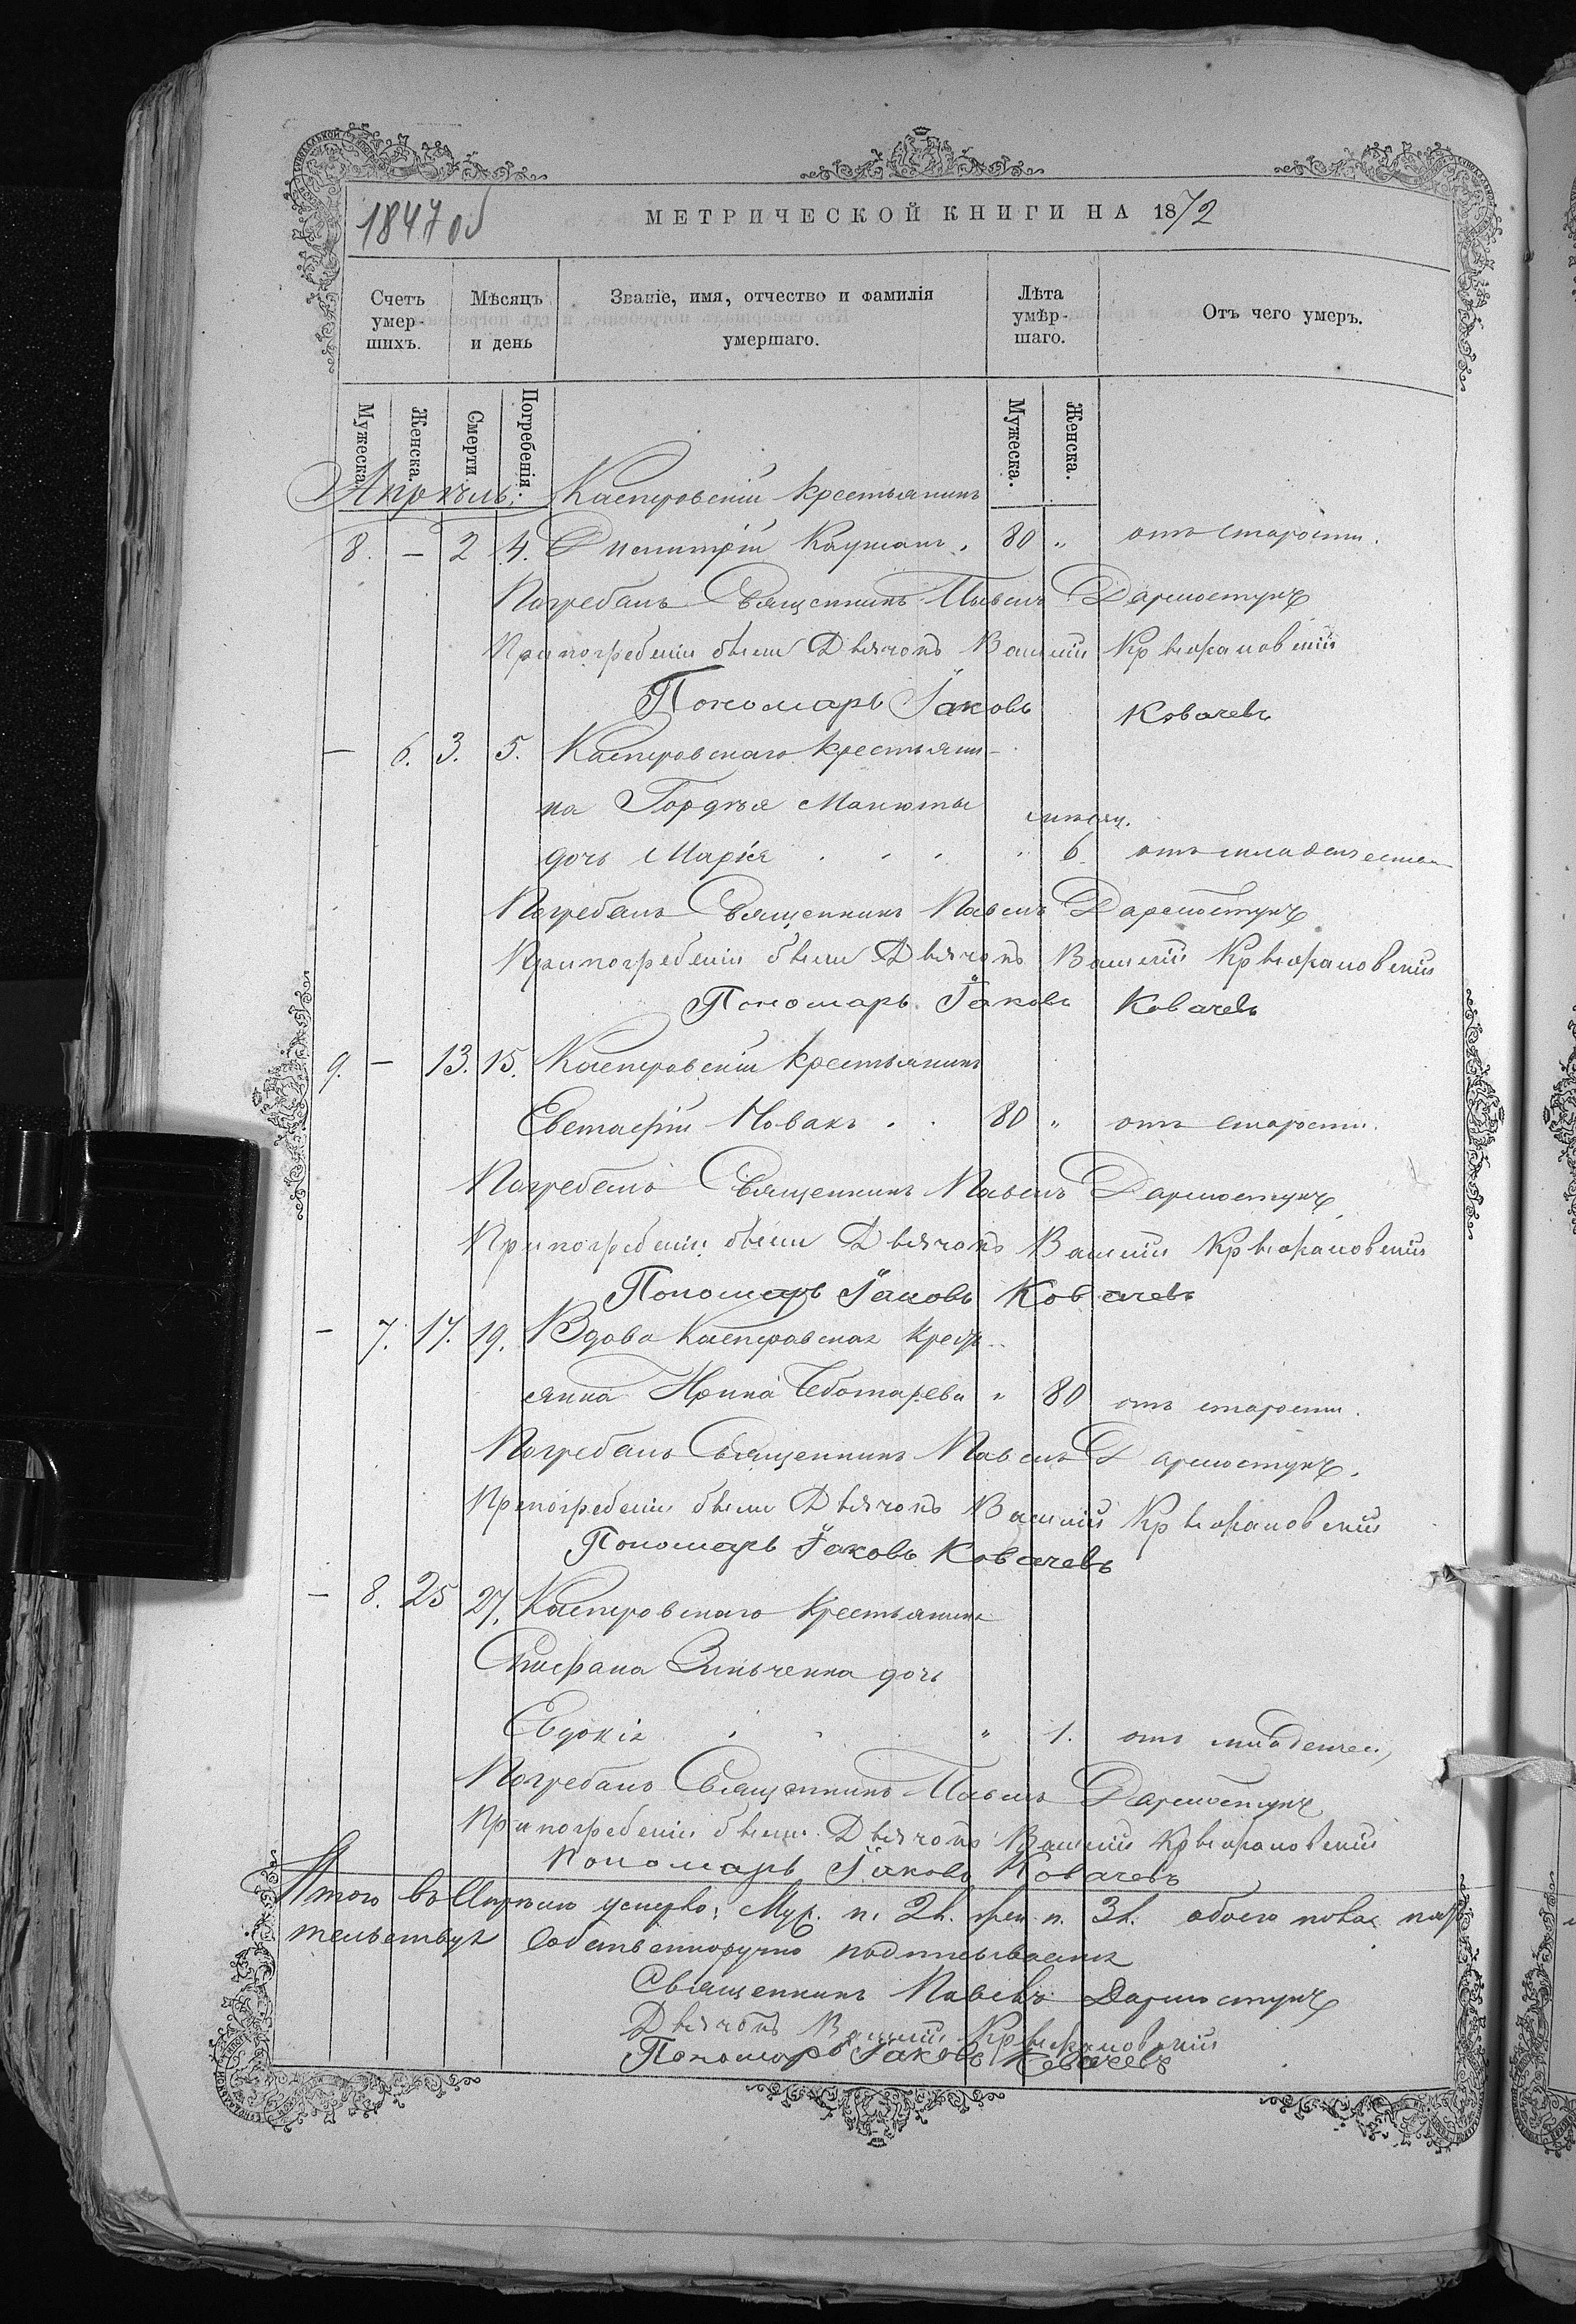 1847 об
МЕТРИЧЕСКОЙ КНИГИ НА 1872
Счетъ умер-шихъ.
Мѣсяцъ и день
Званіе, имя, отчество и фамилія умершаго.
Лѣта умѣр-шаго.
Отъ чего умеръ.
Мужеска.
Женска.
Смерти.
Погребенія.
Мужеска.
Женска.
Апрѣль. Касперовскій крестьянинъ
8. – 2 4. Димитрій Кауманъ. 80 " отъ старости.
Погребалъ Священникъ Павелъ Дармостукъ
При погребеніи были Дьячокъ Василій Крыжановскій
Пономарь Іаковъ Ковачевъ
– 6. 3. 5. Касперовскаго крестьяни-
на Гордѣя Манюты мѣсяц.
дочь Марія . . . " 6 отъ младенчества
Погребалъ Священникъ Павелъ Дармостукъ
При погребеніи были Дьячокъ Василій Крыжановскій
Пономарь Іаковъ Ковачевъ
9. – 13. 15. Касперовскій крестьянинъ
Евстафій Новакъ . . 80 " отъ старости.
Погребалъ Священникъ Павелъ Дармостукъ
При погребеніи были Дьячокъ Василій Крыжановскій
Пономарь Іаковъ Ковачевъ
– 7. 17. 19. Вдова Касперовская крест-
янка Ирина Чеботарева " 80 отъ старости.
Погребалъ Священникъ Павелъ Дармостукъ.
При погребеніи были Дьячокъ Василій Крыжановскій
Пономарь Іаковъ Ковачевъ
– 8. 25 27. Касперовскаго крестьянина
Стефана Зинченка дочь
Евдокія . . " 1. отъ младенчес,
Погребалъ Священникъ Павелъ Дармостукъ
При погребеніи были Дьячокъ Василій Крыжановскій
Пономарь Іаковъ Ковачевъ
Итого въ Апрѣлѣ умерло: Муж. п. 2 л. жен. п. 3 л. обоего пола
собственноручно подписываемся
Священникъ Павелъ Дармостукъ
Дьячокъ Василій Крыжановскій
Пономарь Іаковъ Ковачевъ